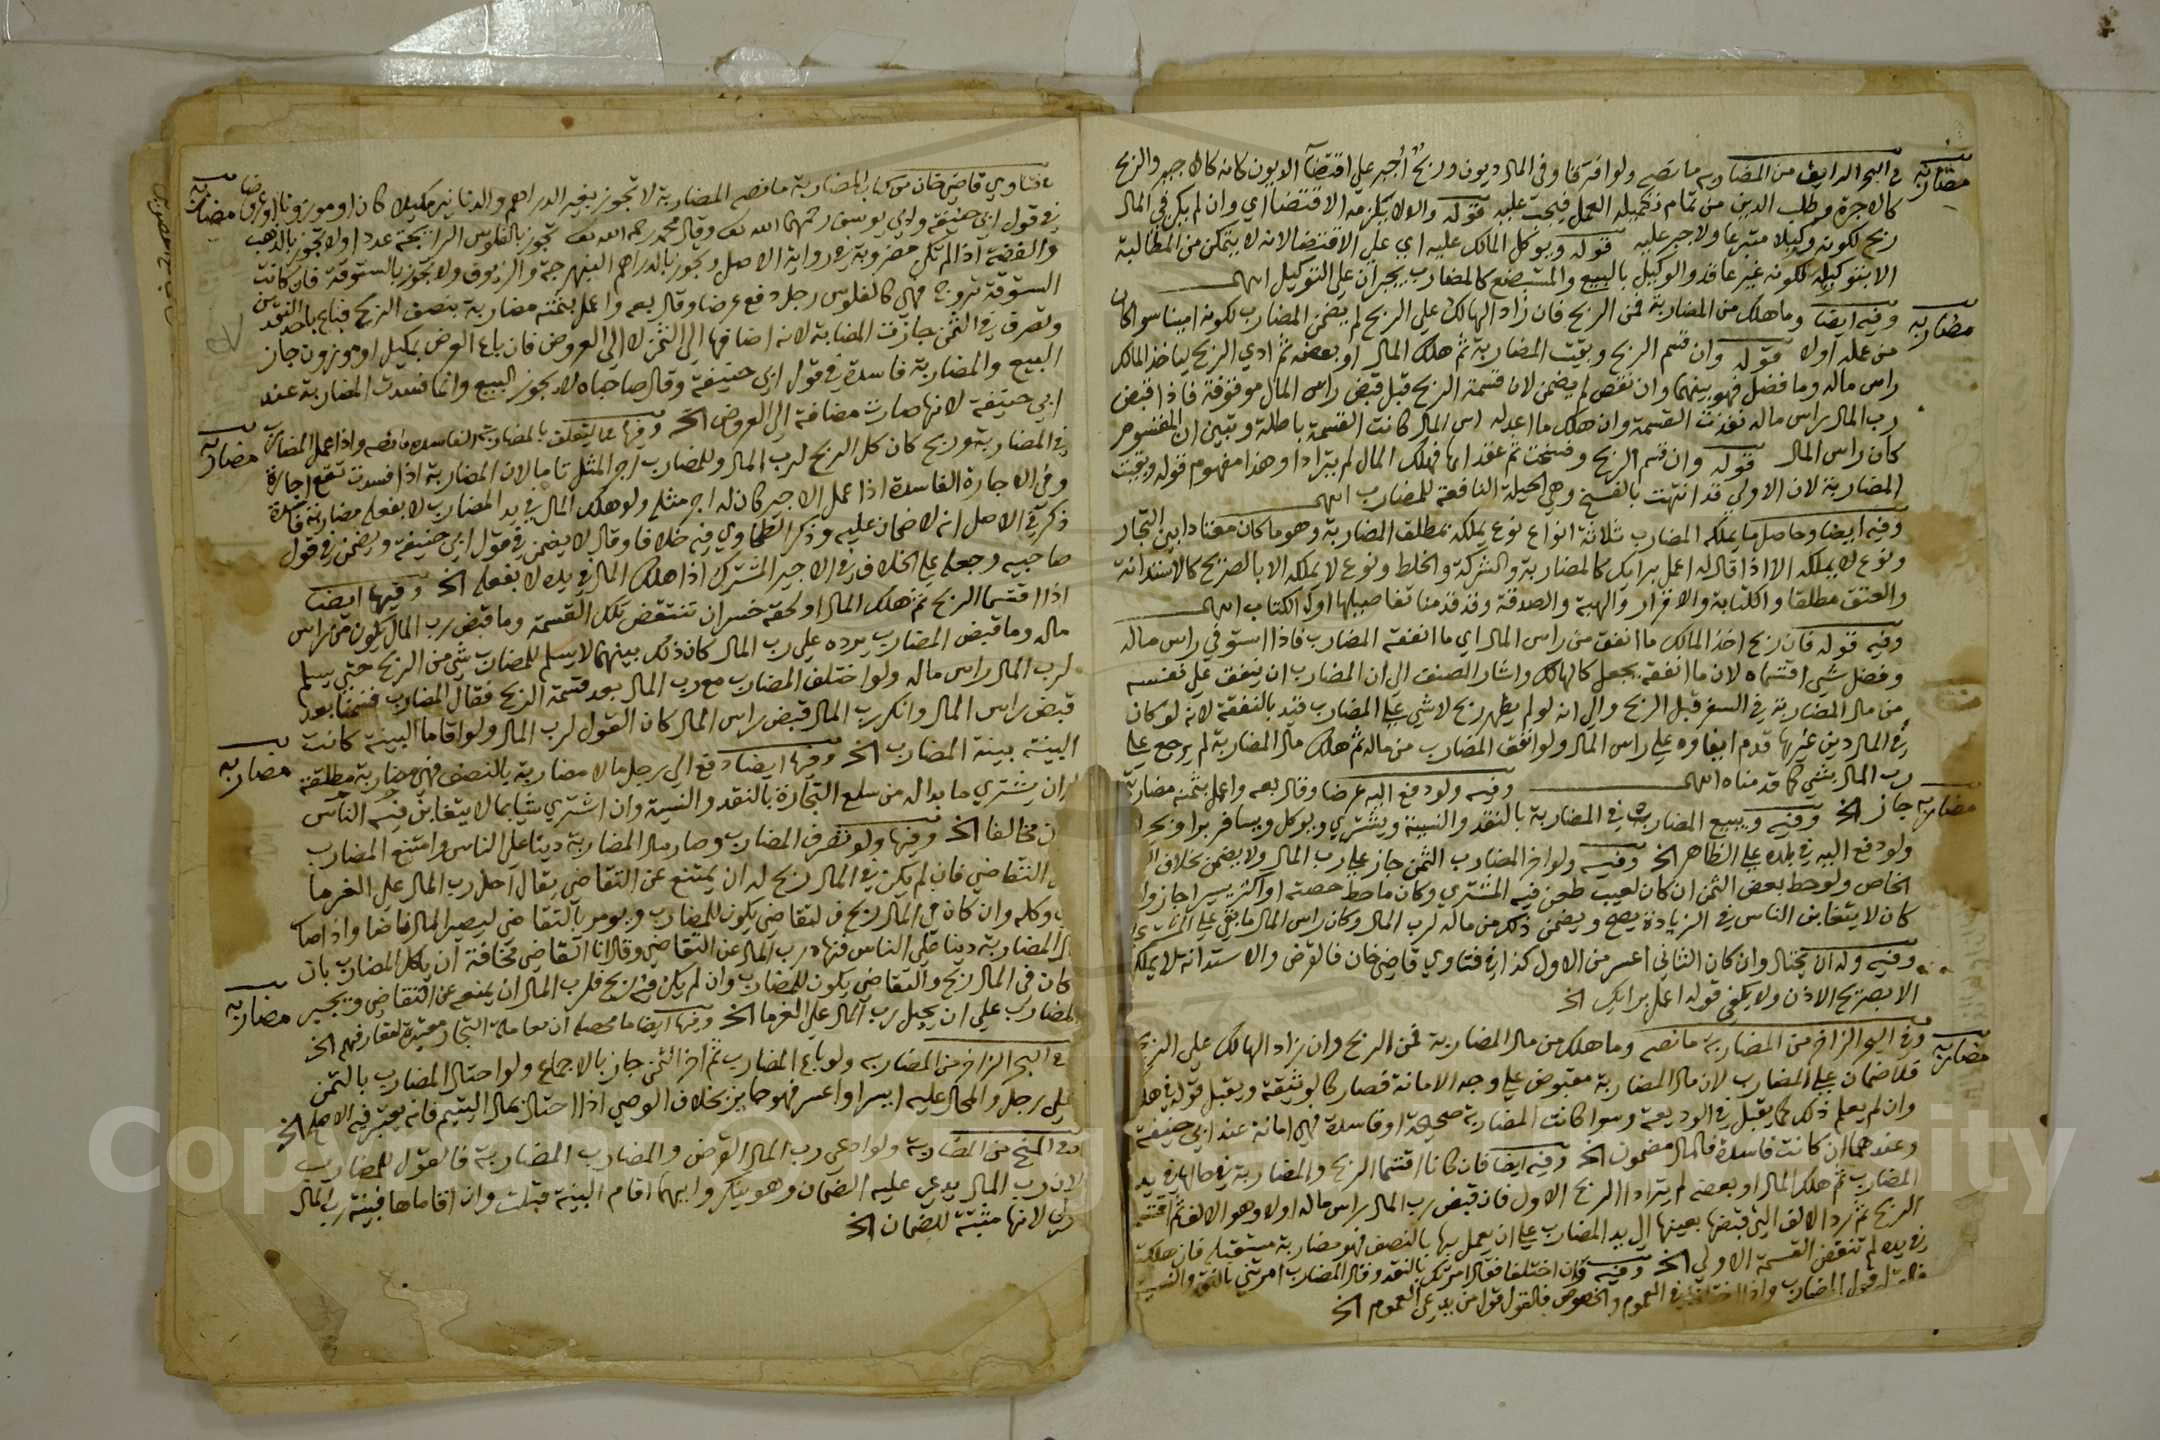 مضاربة
في البحر الرايق من المضاربة ما نصه ولو افترقا وفي المال ديون وربح أجبر علي اقتضآ الديون لانه كالاجير والربح
كالاجرة وطلب الدين من تمام تكميله العمل فيجب عليه قوله والا لا يلزمه الاقتضا اي وان لم يكن في المال
ربح لكونه وكيلا متبرعا ولا جبر عليه قوله ويوكل المالك عليه اي علي الاقتضا لانه لا يتمكن من المطالبة
الا بتوكيله لكونه غير عاقد والوكيل بالبيع والمستبضع كالمضارب يجبران علي التوكيل انتهى
مضاربه
وفيه ايضا وما هلك من المضاربة فمن الربح فان زاد الهالك علي الربح لم يضمن المضارب لكونه امينا سوا كان
من عمله اولا قوله وان قسم الربح وبقيت المضاربة ثم هلك المال او بعضه ثم ادي الربح لياخذ المالك
راس ماله وما فضل فهو بينهما وان نقص لم يضمن لان قسمة الربح قبل قبض راس المال موقوفة فاذا قبض
رب المال راس ماله نفذت القسمة وان هلك ما اعد له راس المال كانت القسمة باطلة وتبين ان المقسوم
كان راس المال قوله وان قسم الربح وفسخت ثم عقداها فهلك المال لم يترادا وهذا مفهوم قوله وبقيت
المضاربة لان الاولي قد انتهت بالفسخ وهي الحيلة النافعة للمضارب انتهى
وفيه ايضا وحاصل ما يملكه المضارب ثلاثة انواع نوع يملكه بمطلق المضاربة وهو ما كان معتادا بين التجار
ونوع لا يملكه الا اذا قال له اعمل برايك كالمضاربة والشركة والخلط ونوع لا يملكه الا بالصريح كالاستدانة
والعتق مطلقا والكتابة والاقرار والهبة والصدقة وقد قدمنا تفاصيلها اول الكتاب انتهى
وفيه قوله فان ربح اخذ المالك ما انفق من راس المال اي ما انفقه المضارب فاذا استوفي راس ماله
وفضل شي اقتسماه لان ما انفقه يجعل كالهالك واشار المصنف الي ان المضارب ان ينفق علي نفسه
من مال المضاربة في السفر قبل الربح والي انه لو لم يظهر ربح لا شي علي المضارب قيد بالنفقة لانه لو كان
في المال دين غيرها قدم ايفاوه علي راس المال ولو انفق المضارب من ماله ثم هلك مال المضاربة لم يرجع علي
رب المال بشي كما قدمناه انتهى وفيه ولو دفع اليه عرضا وقال بعه واعمل بثمنه مضاربة
مضاربه
جاز الخ وفيه ويبيع المضارب في المضاربة بالنقد والنسيئة ويشتري ويوكل ويسافر برا وبحرا
ولو دفع اليه في بلده علي الظاهر الخ وفيه ولو اخر المضارب الثمن جاز علي رب المال ولا يضمن بخلاف
الخاص ولو حط بعض الثمن ان كان لعيب طعن فيه المشتري وكان ما حط حصته او اكثر يسير اجاز وا
كان لا يتغابن الناس في الزيادة يصح ويضمن ذلك من ماله لرب المال وكان راس المال ما بقي علي المشتري
وفيه وله ان يحتال وان كان الثاني اعسر من الاول كذا في فتاوي قاضي خان فالقرض والاستدانة لا يملكه
الا بصريح الاذن ولا يكفي قوله اعمل برايك الخ
مضاربه
وفي البحر الزاخر من المضاربة ما نصه وما هلك من مال المضاربة فمن الربح وان زاد الهالك علي الربح
فلا ضمان علي المضارب لان مال المضاربة مقبوض علي وجه الامانة فصار كالوثيقة ويقبل قوله في هلا
وان لم يعلم ذلك كما يقبل في الوديعة وسوا كانت المضاربة صحيحة او فاسدة فهي امانة عند ابي حنيفة
وعندهما ان كانت فاسدة فالمال مضمون الخ وفيه ايضا فان كانا اقتسما الربح والمضاربة في حالها في يد
المضارب ثم هلك المال او بعضه لم يترادا الربح الاول فان قبض رب المال راس ماله اولا وهو الالف ثم اقتسما
الربح ثم رد الالف التي قبضها بعينها الي يد المضارب علي ان يعمل بها بالنصف فهو مضاربة مستقبله فان هلكت
في يده لم تنقض القسمة الاولي الخ وفيه فان اختلفا فقال امرتك بالنقد وقال المضارب امرتني بالنقد والنسيئة
فالقول قول المضارب واذا اختلفا في العموم والخصوص فالقول قول من يدعي العموم الخ
مضاربه
فتاوي قاضي خان من كتاب المضاربة ما نصه المضاربة لا تجوز بغير الدراهم والدنانير مكيلا كان او موزونا او عرضا
في قول ابي حنيفة وابي يوسف رحمهما الله تعالى وقال محمد رحمه الله تعالى تجوز بالفلوس الرايجة عددا ولا تجوز بالذهب
والفضة اذا لم تكن مضروبة في رواية الاصل وتجوز بالدراهم النبهرجة والزيوف ولا تجوز بالستوقة فان كانت
الستوقة تروج فهي كالفلوس رجل دفع عرضا وقال بعه واعمل بثمنه مضاربة بنصف الربح فباع باحد النقدين
وتصرف في الثمن جازت المضاربة لانه اضافها الي الثمن لا الي العروض فان باع العرض بمكيل او موزون جاز
البيع والمضاربة فاسدة في قول ابي حنيفة وقال صاحباه لا يجوز البيع وانما فسدت المضاربة عند
ابي حنيفة لانها صارت مضافة الي العروض الخ وفيها مما يتعلق بالمضاربة الفاسدة ما نصه واذا عمل المضارب
مضاربه
في المضاربة وربح كان كل الربح لرب المال وللمضارب اجر المثل تاما لان المضاربة اذا فسدت تقع اجارة
وفي الاجارة الفاسدة اذا عمل الاجير كان له اجر مثله ولو هلك المال في يد المضارب لا بفعله مضاربة فاسدة
ذكر في الاصل انه لا ضمان عليه وذكر الطحاوي فيه خلافا وقال لا يضمن في قول ابي حنيفة ويضمن في قول
صاحبيه وجعله علي الخلاف في الاجير المشترك اذا هلك المال في يده لا بفعله الخ وفيها ايضا
اذا اقتسما الربح ثم هلك المال او لحقه خسران تنتقض تلك القسمة وما قبض رب المال يكون من راس
ماله وما قبض المضارب يرده علي رب المال كان ذلك بينهما لا يسلم للمضارب شي من الربح حتي يسلم
لرب المال راس ماله ولو اختلف المضارب مع رب المال بعد قسمة الربح فقال المضارب قسمنا بعد
قبض راس المال وانكر رب المال قبض راس المال كان القول لرب المال ولو اقاما البينة كانت
البينة بينة المضارب الخ وفيها ايضا دفع الي رجل مالا مضاربة بالنصف فهي مضاربة مطلقة
مضاربه
ان يشتري ما بدا له من سلع التجارة بالنقد والنسية وان اشتري شيا بما لا يتغابن فيه الناس
مخالفا الخ وفيها ولو تصرف المضارب وصار مال المضاربة دينا علي الناس وامتنع المضارب
التقاضي فان لم يكن في المال ربح له ان يمتنع عن التقاضي يقال احل رب المال علي الغرما
وكله وان كان في المال ربح فالتقاضي يكون للمضارب ويومر بالتقاضي ليصير المال ناضا واذا صار
المضاربة دينا علي الناس فنهاه رب المال عن التقاضي وقال انا اتقاضي مخافة ان ياكل المضارب بان
كان في المال ربح والتقاضي يكون للمضارب وان لم يكن فيه ربح فلرب المال ان يمنعه عن التقاضي ويجبر
مضاربه
المضارب علي ان يحيل رب المال علي الغرما الخ وفيها ايضا ما محصله ان معاملة التجار معتبرة لتعارفهم الخ
في البحر الزاخر من المضاربه ولو باع المضارب ثم اخر الثمن جاز بالاجماع ولو احتال المضارب بالثمن
علي رجل والمحال عليه ايسر او اعسر فهو جايز بخلاف الوصي اذا احتال بمال اليتيم فانه يعتبر فيه الاصلح الخ
وفي المنح من المضاربة ولو ادعي رب المال القرض والمضارب المضاربة فالقول للمضارب
لان رب المال يدعي عليه الضمان وهو ينكر وايهما اقام البينة قبلت وان اقاماها فبينة رب المال
لانها مثبتة للضمان الخ